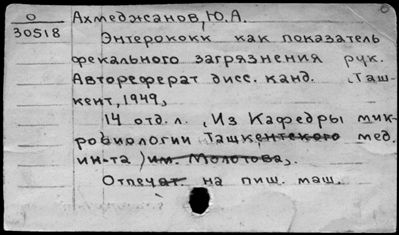 О
30518
Ахмеджанов, Ю.А.
Энтерококк как показатель
фекального загрязнения рук.
Автореферат дисс. канд. (Таш-
кент, 1949)
14 отд. л. (Из Кафедры мик-
робиологии Ташкентского мед.
ин-та им. Молотова).
Отпечат. на пиш. маш.